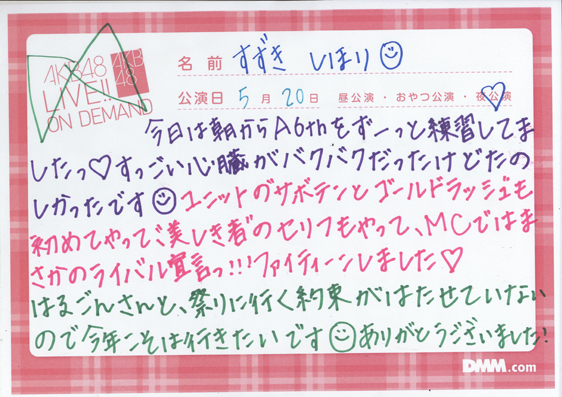 AKB48
LIVE!!
ON DEMAND
AKB
48
名前 すずき しほり
公演日 5月20日 昼公演・おやつ公演・夜公演
今日は朝からA6thをずーっと練習してま
したっ♡すっごい心臓がバクバクだったけどたの
しかったです☺ユニットのサボテンとゴールドラッシュも
初めてやって"美しき者"のセリフもやって、MCではま
さかのライバル宣言っ!!!ファイティーンしました♡
はるごんさんと、祭りに行く約束がはたせていない
ので今年こそは行きたいです☺ありがとうございました!
DMM.com